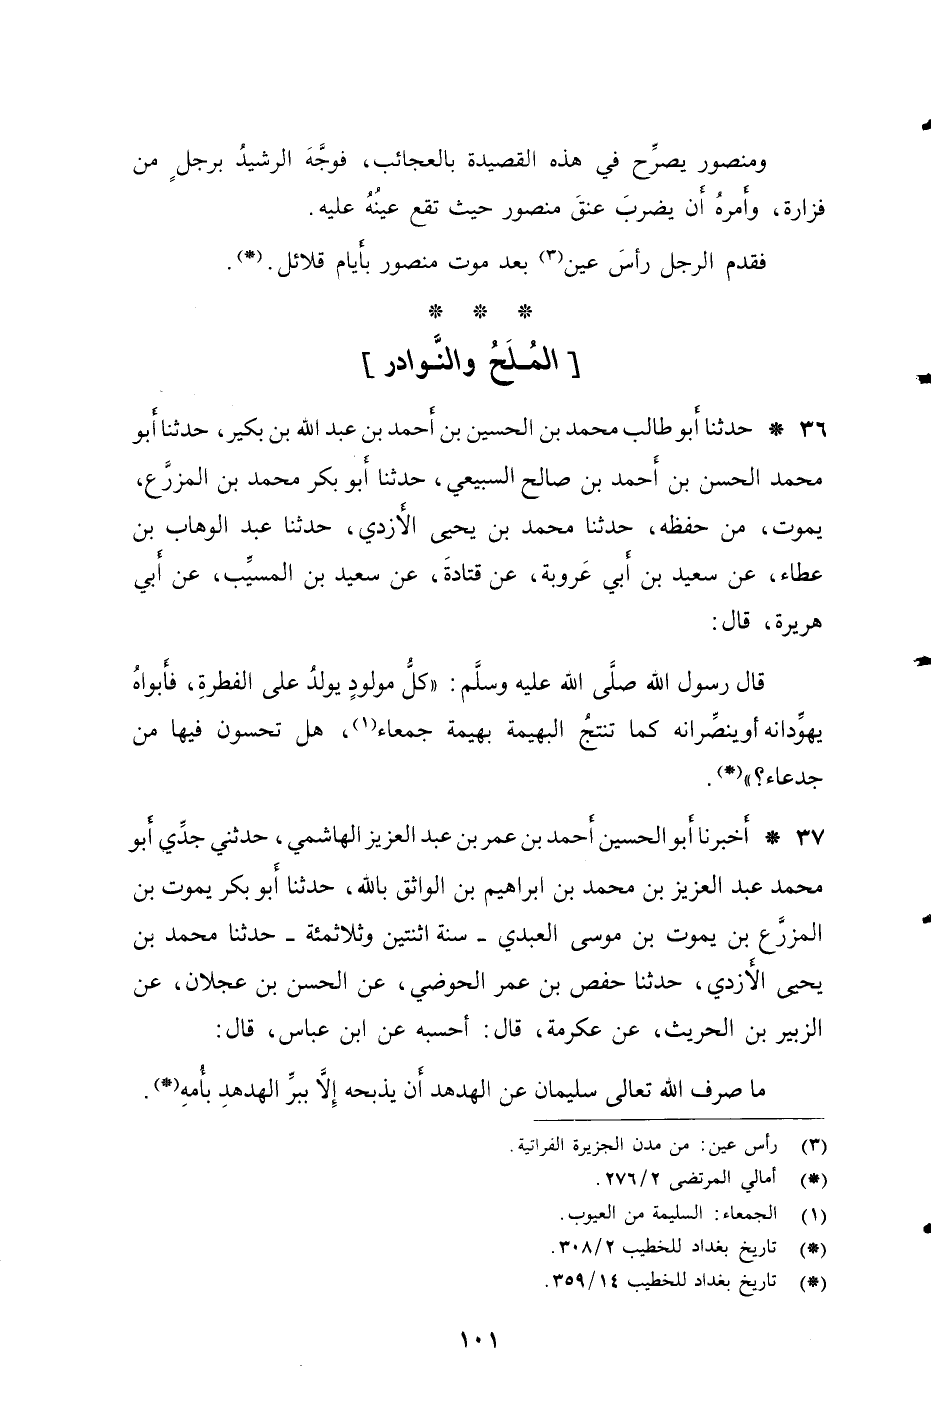 ومنصور يصرِّح في هذه القصيدة بالعجائب، فوجَّهَ الرشيدُ برجلٍ من
فزارة، وأَمرهُ أَن يضربَ عنقَ منصور حيث تقع عينُهُ عليه.
فقدم الرجل رأسَ عين(٣) بعد موت منصور بأَيام قلائل. (*).
* * *
[ المُلَحُ والنَّوادر ]
٣٦ * حدثنا أَبو طالب محمد بن الحسين بن أَحمد بن عبد الله بن بكير، حدثنا أَبو
محمد الحسن بن أَحمد بن صالح السبيعي، حدثنا أَبو بكر محمد بن المزرَّع،
يموت، من حفظه، حدثنا محمد بن يحيى الأَزدي، حدثنا عبد الوهاب بن
عطاء، عن سعيد بن أَبي عَروبة، عن قتادةَ، عن سعيد بن المسيِّب، عن أَبي
هريرة، قال:
قال رسول الله صلَّى الله عليه وسلَّم: «كلُّ مولودٍ يولدُ على الفطرةِ، فأَبواهُ
يهوِّدانه أو ينصِّرانه كما تنتجُ البهيمة بهيمة جمعاء(١)، هل تحسون فيها من
جدعاء؟»(*).
٣٧ * أَخبرنا أَبو الحسين أَحمد بن عمر بن عبد العزيز الهاشمي، حدثني جدِّي أَبو
محمد عبد العزيز بن محمد بن ابراهيم بن الواثق بالله، حدثنا أَبو بكر يموت بن
المزرَّع بن يموت بن موسى العبدي ـ سنة اثنتين وثلاثمئة ـ حدثنا محمد بن
يحيى الأَزدي، حدثنا حفص بن عمر الحوضي، عن الحسن بن عجلان، عن
الزبير بن الحريث، عن عكرمة، قال: أحسبه عن ابن عباس، قال:
ما صرف الله تعالى سليمان عن الهدهد أَن يذبحه إلَّا ببرِّ الهدهدِ بأُمهِ(*).
(٣) رأس عين: من مدن الجزيرة الفراتية.
(*) أمالي المرتضى ٢/٢٧٦.
(١) الجمعاء: السليمة من العيوب.
(*) تاريخ بغداد للخطيب ٢/٣٠٨.
(*) تاريخ بغداد للخطيب ١٤/٣٥٩.
١٠١